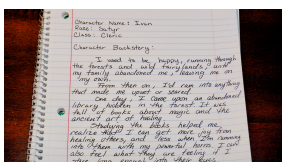 Character Name: Ivan
Race: Satyr
Class: Cleric
Character Backstory:
I used to be happy, running through
the forests and wild fairylands, and
my family abandoned me, leaving me on
my own.
From then on, I'd ram into anything
that made me upset or scared.
One day, I came upon an abandoned
library hidden in the forest. It was
full of books about magic and the
ancient art of healing.
Studying the books helped me
realize that I can get more joy from
healing others, and less when I'm ramming
into them with my powerful horns. I can
also feel what they are feeling if I